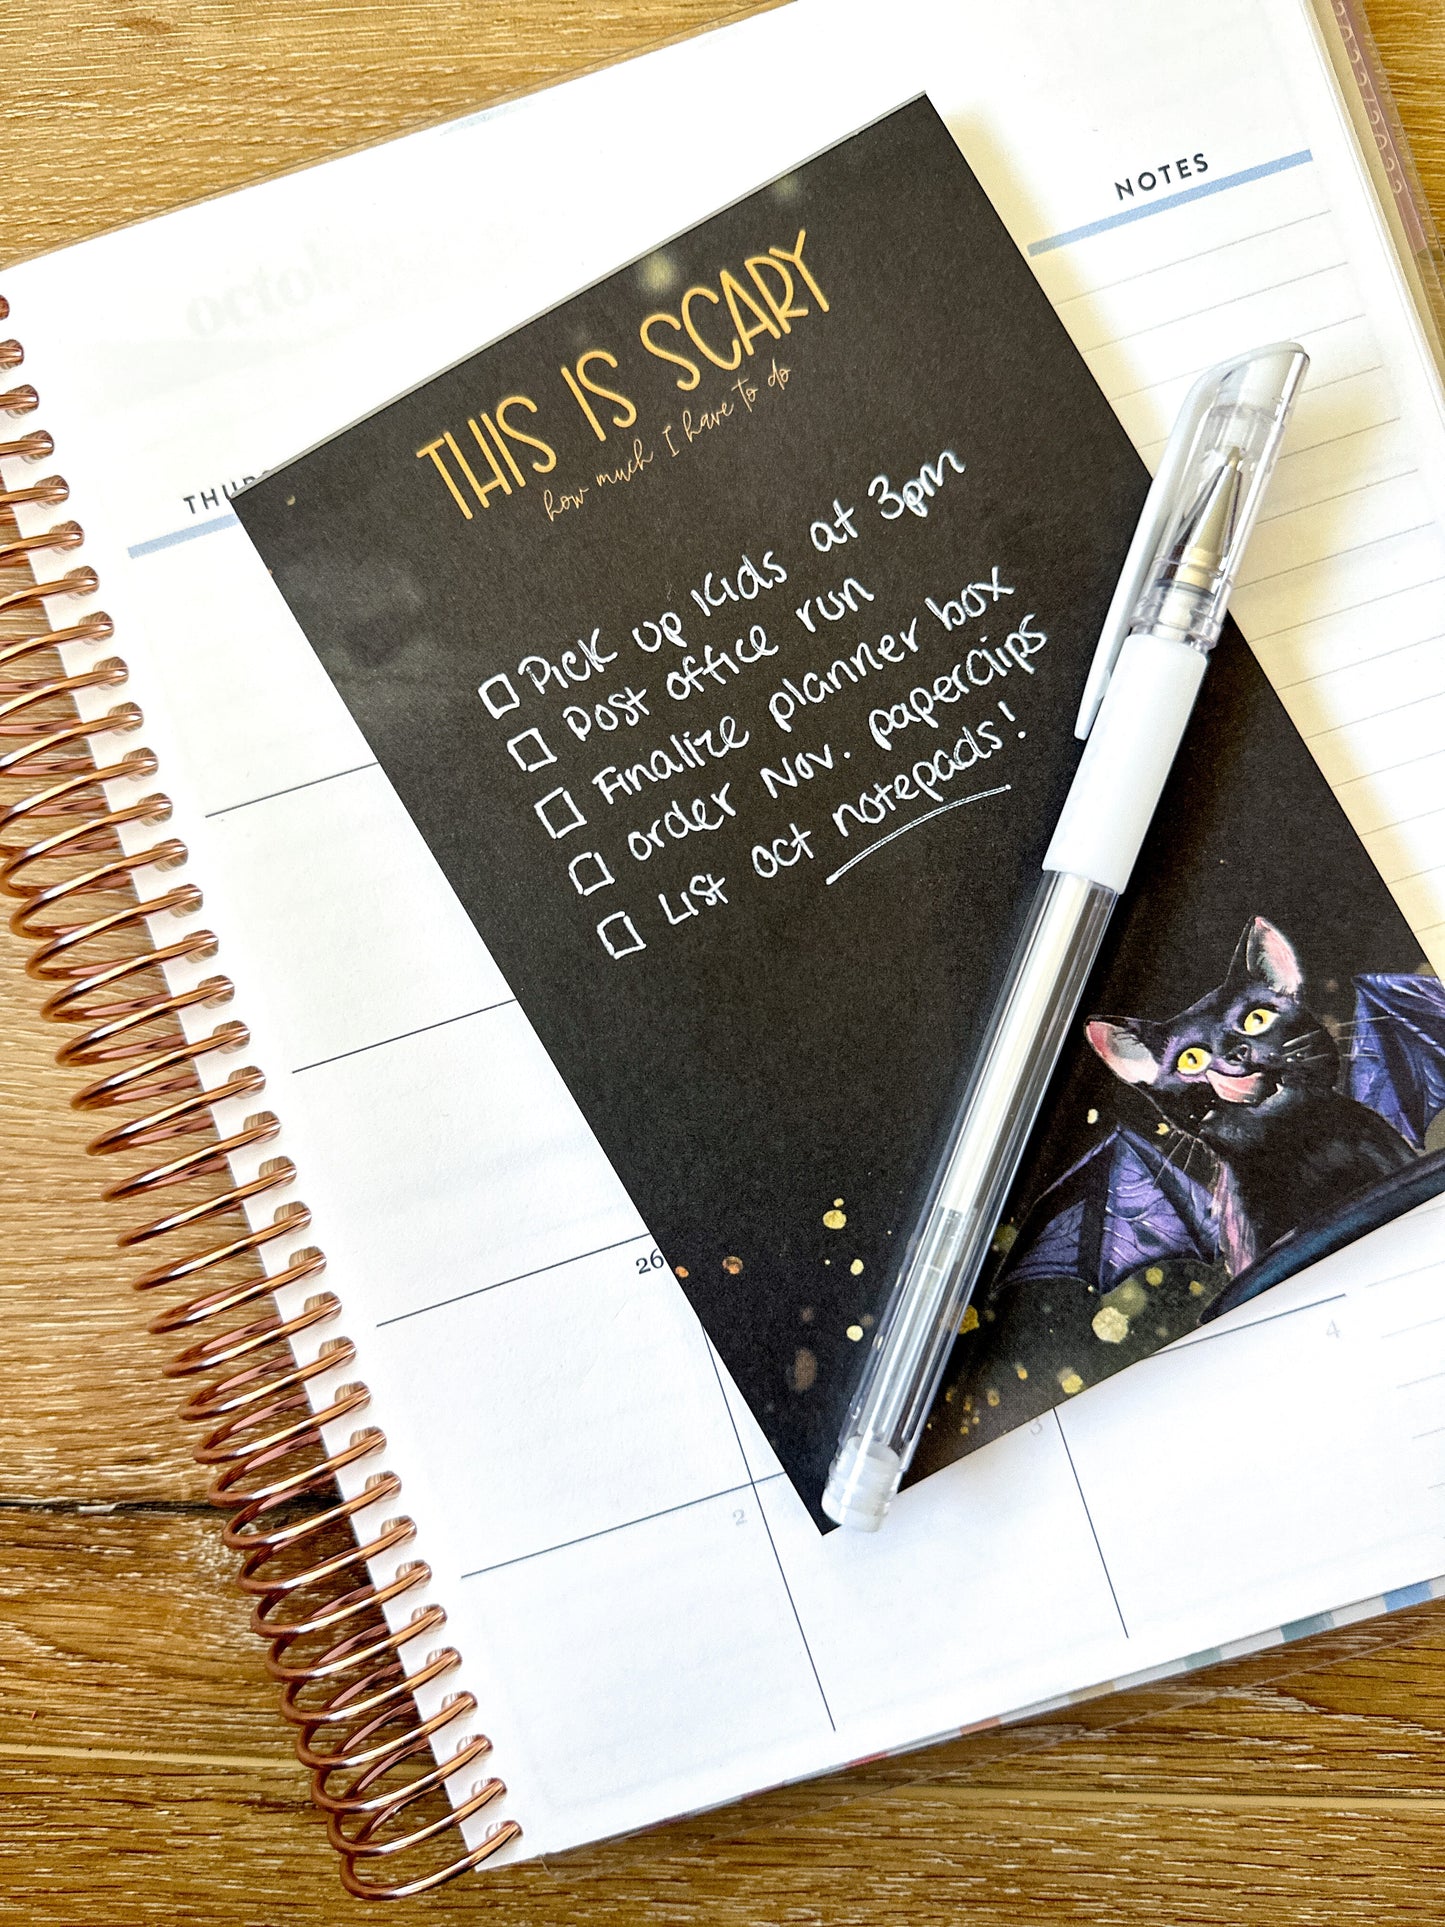 NOTES
THIS IS SCARY
how much I have to do
Pick up kids at 3pm
Post office run
Finalize planner box
order Nov. paperclips
List oct notepads!
26
2
3
4